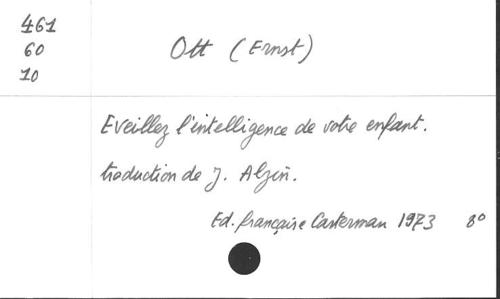 461
60
10
Ott (Ernst)
Eveillez l'intelligence de votre enfant.
traduction de J. Alzin.
Ed. française Casterman 1973 8°